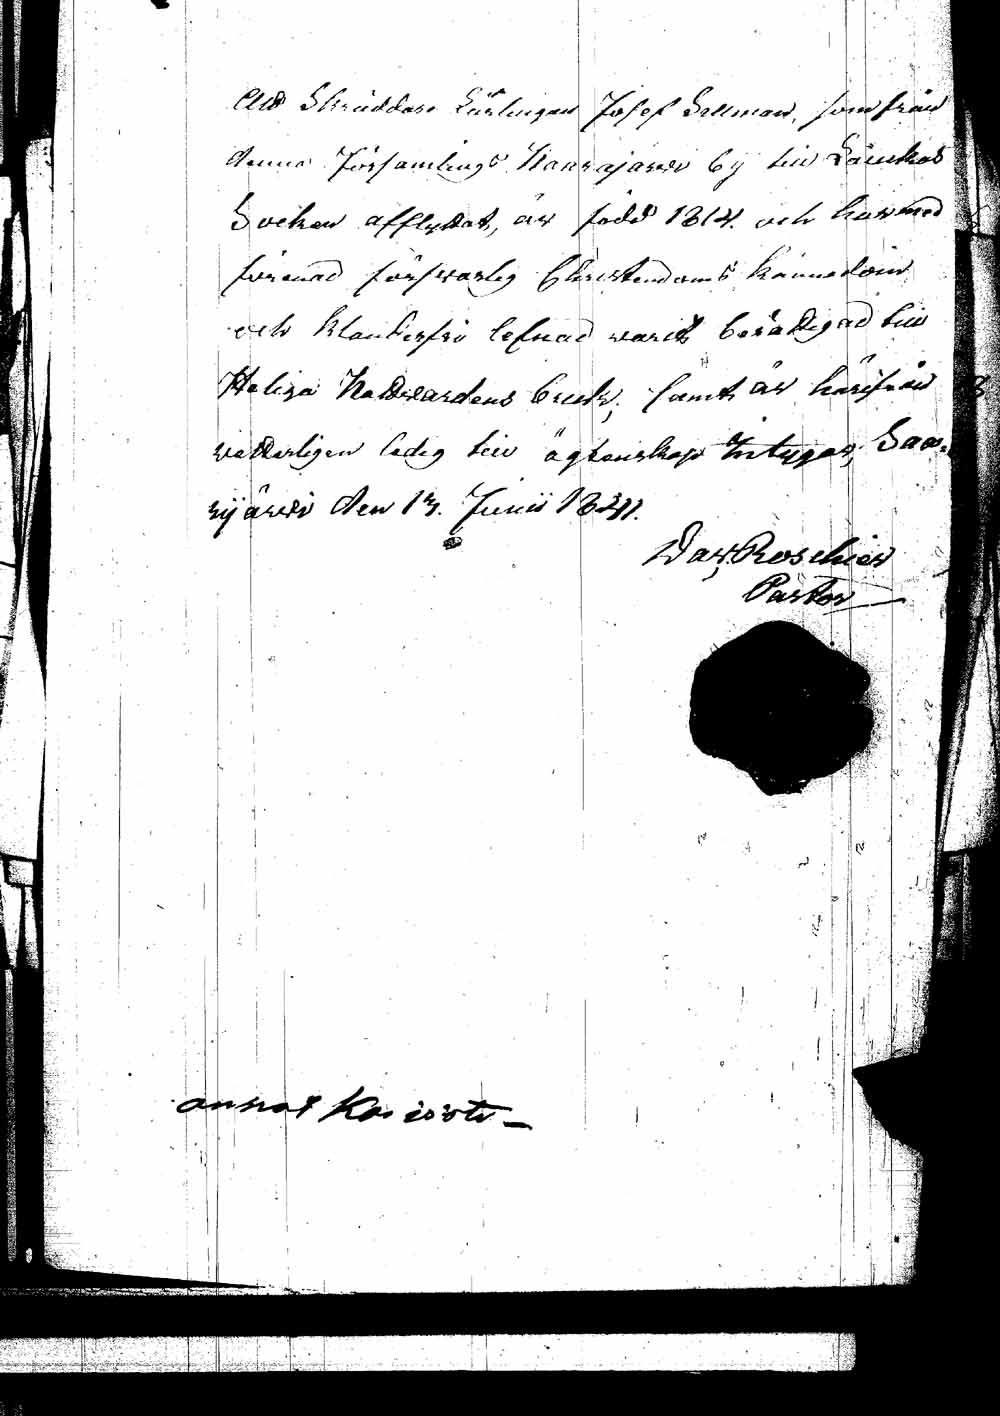 Att Skräddare Lärlingen Josef Sellman, som från
denna Församlings Kannajärwi by till Laukas
Socken afflyttat, är född 1814. och har med
förenad förswarlig Christendoms kännedom
och klanderfri lefnad varit berättigad till
Heliga Nattvardens bruk, samt är härifrån
vetterligen ledig till ägtenskap Intygar; Saa-
rijärwi den 13. Junii 1841.
Dav. Roschier
Pastor
annat